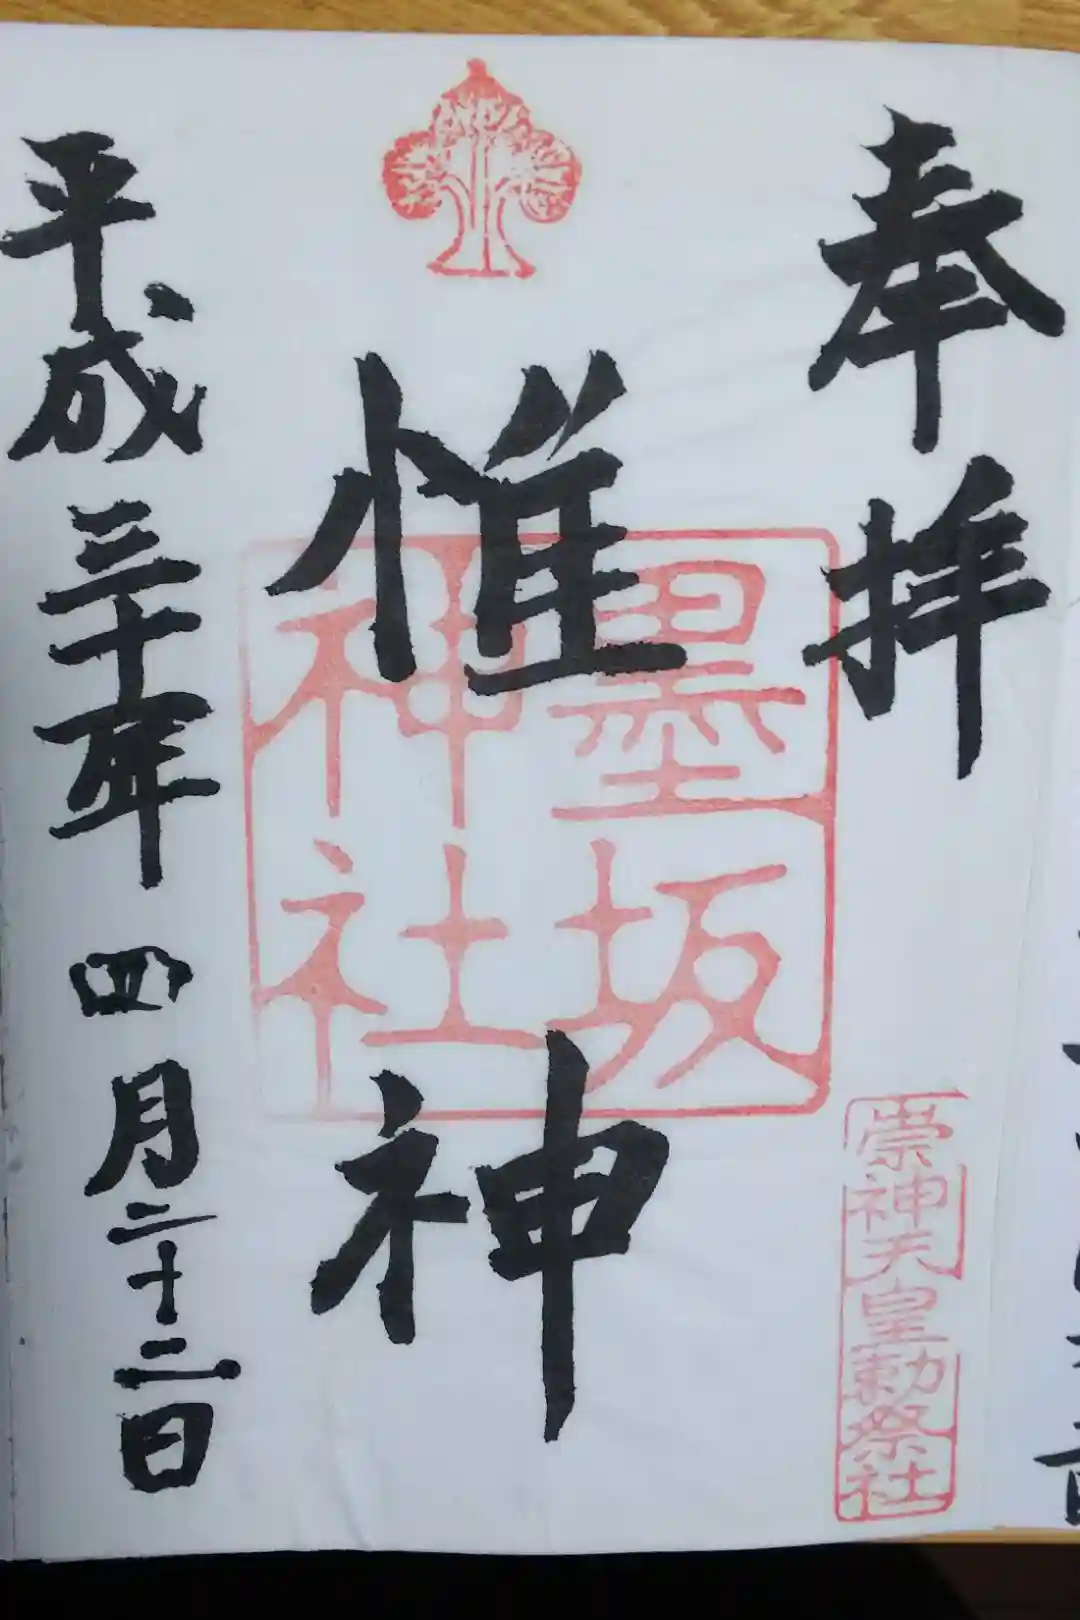 奉拝
惟神
墨坂
神社
崇神天皇勅祭社
平成三十年四月二十二日